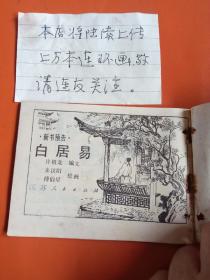 本店将陆续上传
上万本连环画,敬
请连友关注。
·新书预告·
白居易
许祖龙 编文
朱汉阳
傅伯星 绘画
江苏人民出版社